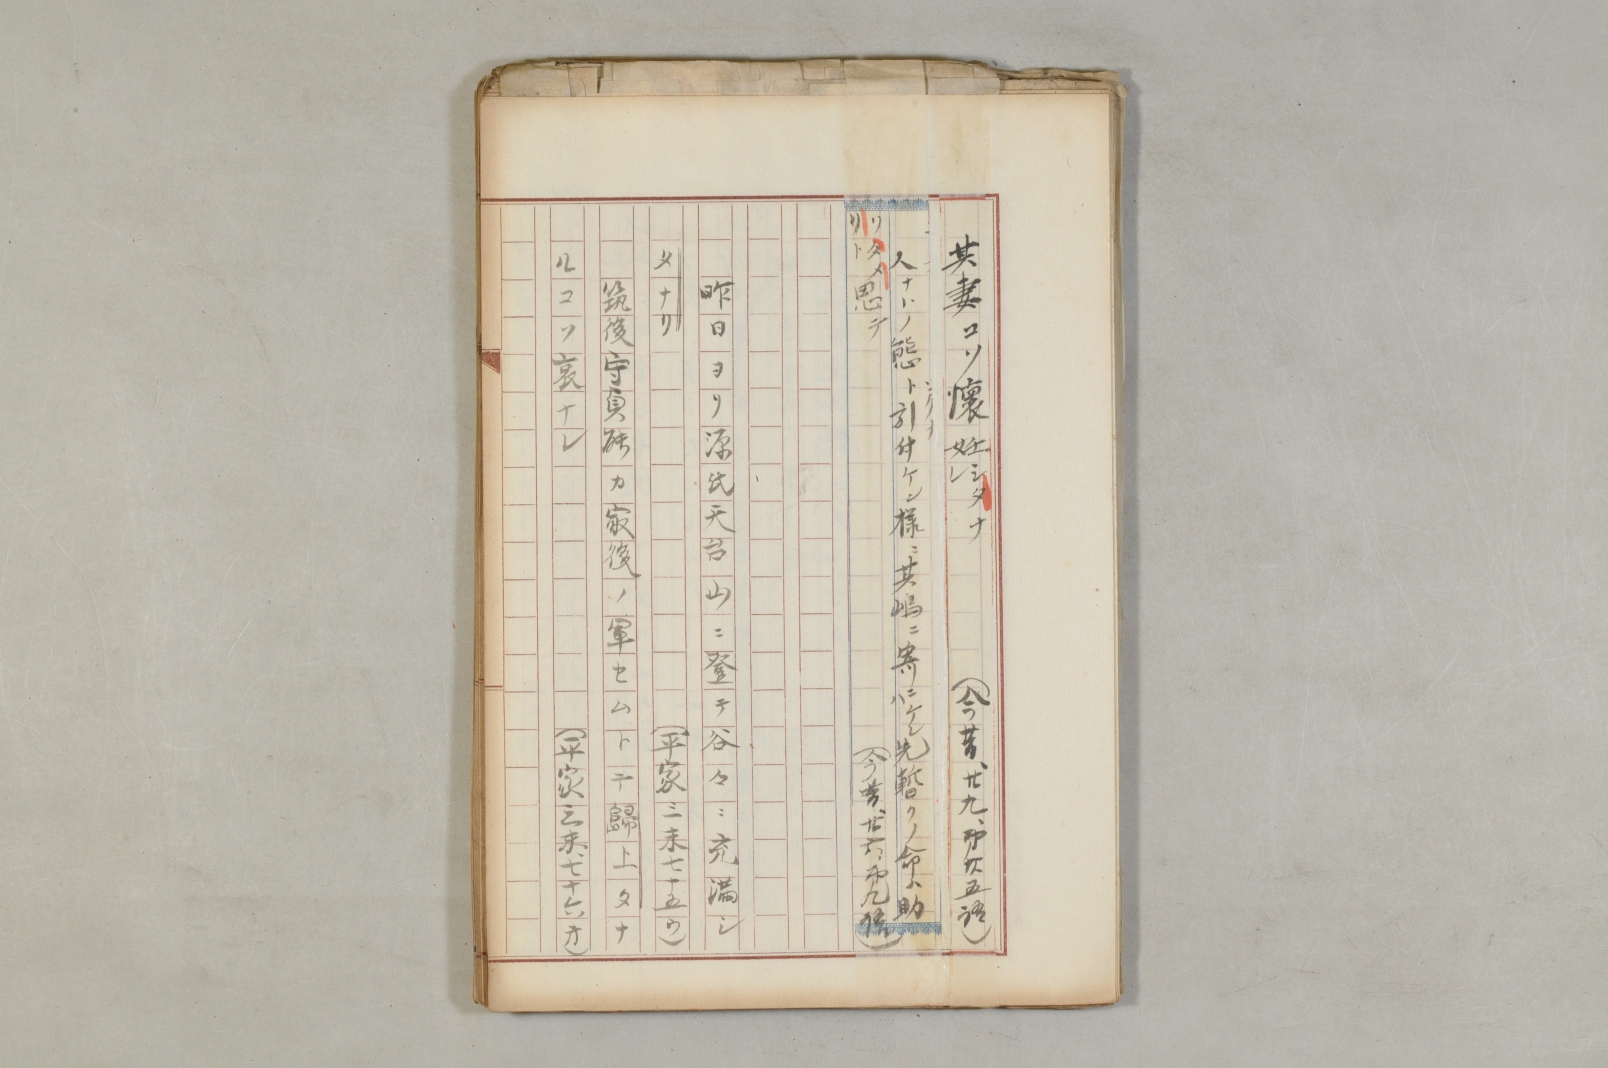 其妻コソ懐妊シタナレ（今昔、廿九、第廿五語）
人ナドノ態ト引付ケン様ニ其嶋ニ寄ニケレバ先暫クノ命ハ助
リタメリト思テ（今昔、廿六、第九語）
昨日ヨリ源氏天台山ニ登テ谷々ニ充満シ
タナリ（平家三末七十五ウ）
筑後守貞能カ最後ノ軍セムトテ歸上タナ
ルコソ哀ナレ（平家三末、七十六オ）